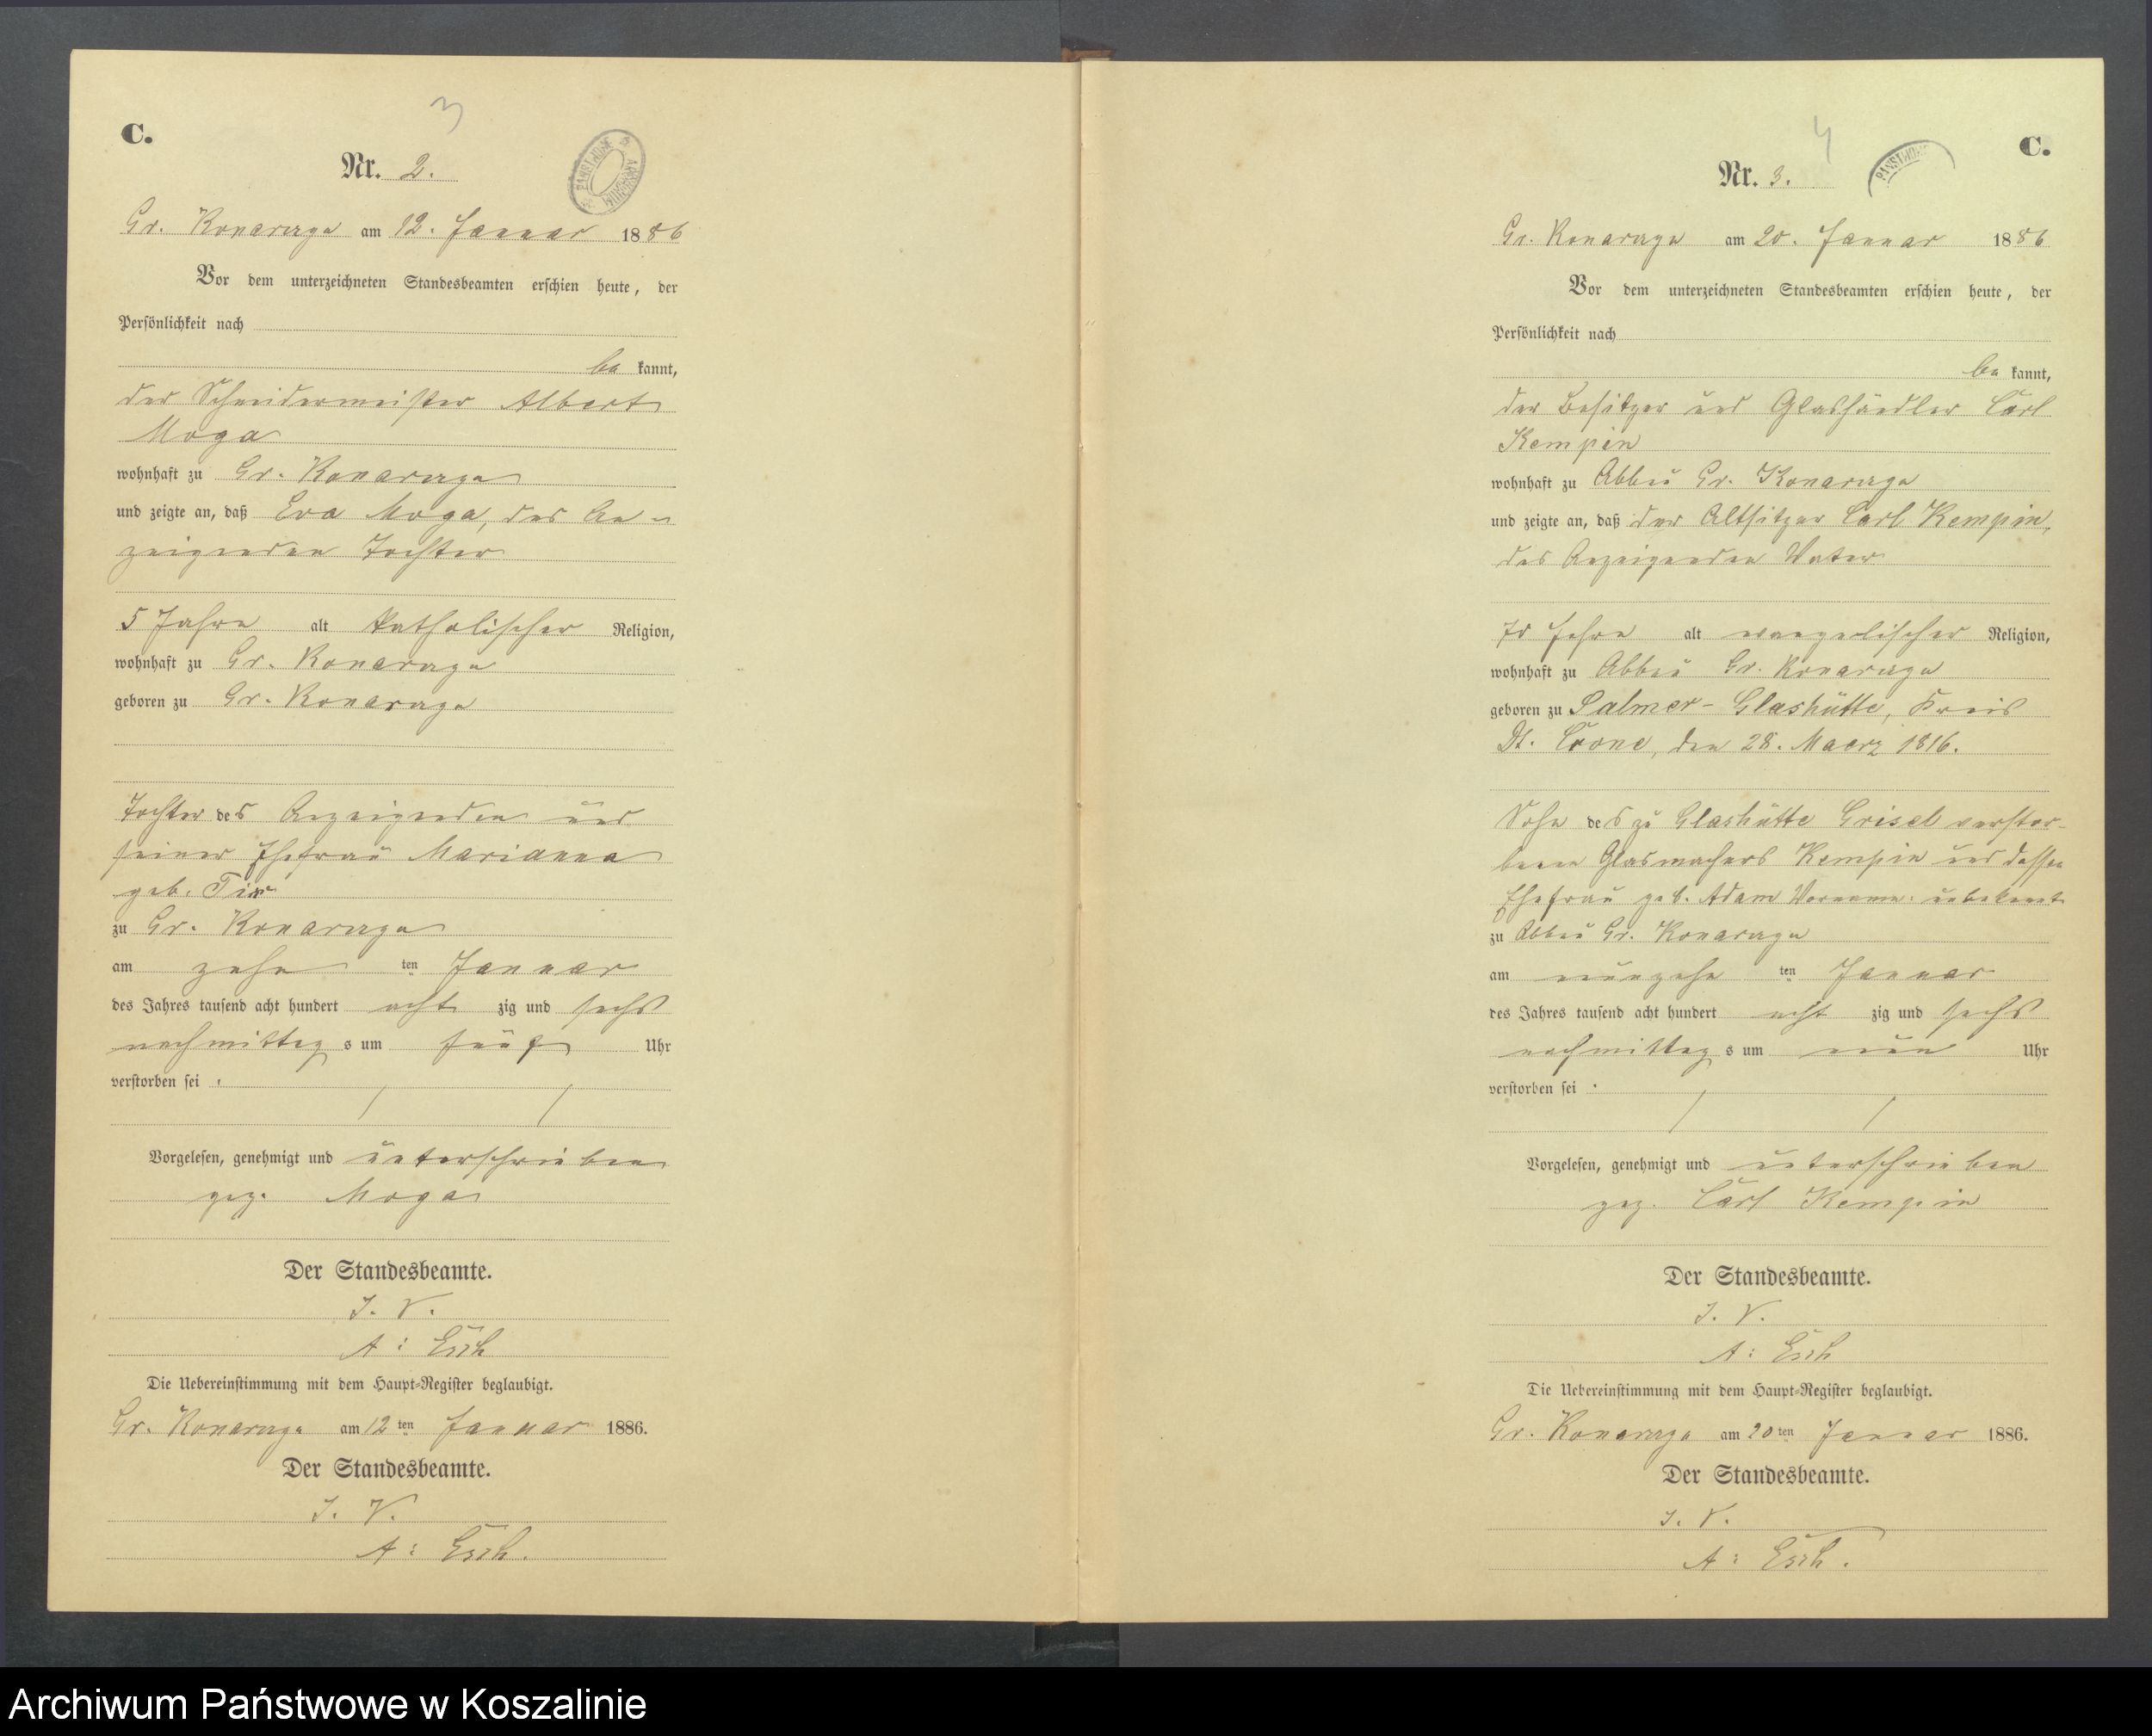 3
C.
Nr. 2.
Gr. Konarczyn am 12. Januar 1886
Vor dem unterzeichneten Standesbeamten erschien heute, der
Persönlichkeit nach
be kannt,
der Schneidermeister Albert
Moga
wohnhaft zu Gr. Konarczyn
und zeigte an, daß Eva Moga, des An-
zeigenden Tochter
5 Jahre alt katholischer Religion,
wohnhaft zu Gr. Konarczyn
geboren zu Gr. Konarczyn
Tochter des Anzeigenden und
seiner Ehefrau Marianna
geb.
zu Gr. Konarczyn
am zehn ten Januar
des Jahres tausend acht hundert acht zig und sechs
nachmittag s um fünf Uhr
verstorben sei.
Vorgelesen, genehmigt und unterschrieben
gez. Moga
Der Standesbeamte.
I. V.
A: Esch
Die Uebereinstimmung mit dem Haupt-Register beglaubigt.
Gr. Konarczyn am 12 ten Januar 1886.
Der Standesbeamte.
I. V.
A: Esch.
4
C.
Nr. 3.
PAŃSTWOWE
Gr. Konarczyn am 20. Januar 1886
Vor dem unterzeichneten Standesbeamten erschien heute, der
Persönlichkeit nach
be kannt,
der Besitzer und Glashändler Carl
Kempin
wohnhaft zu Abbau Gr. Konarczyn
und zeigte an, daß der Altsitzer Carl Kempin,
des Anzeigenden Vater
70 Jahre alt evangelischer Religion,
wohnhaft zu Abbau Gr. Konarczyn
geboren zu Salmer-Glashütte, Kreis
Dt. Crone, den 28. Maerz 1816.
Sohn des zu Glashütte Grisel verstor-
benen Glasmachers Kempin und dessen
Ehefrau geb. Adam Vorname unbekannt
zu Abbau Gr. Konarczyn
am neunzehn ten Januar
des Jahres tausend acht hundert acht zig und sechs
nachmittag s um neun Uhr
verstorben sei.
Vorgelesen, genehmigt und unterschrieben
gez. Carl Kempin
Der Standesbeamte.
I. V.
A: Esch
Die Uebereinstimmung mit dem Haupt-Register beglaubigt.
Gr. Konarczyn am 20 ten Januar 1886.
Der Standesbeamte.
I. V.
A: Esch.
Archiwum Państwowe w Koszalinie